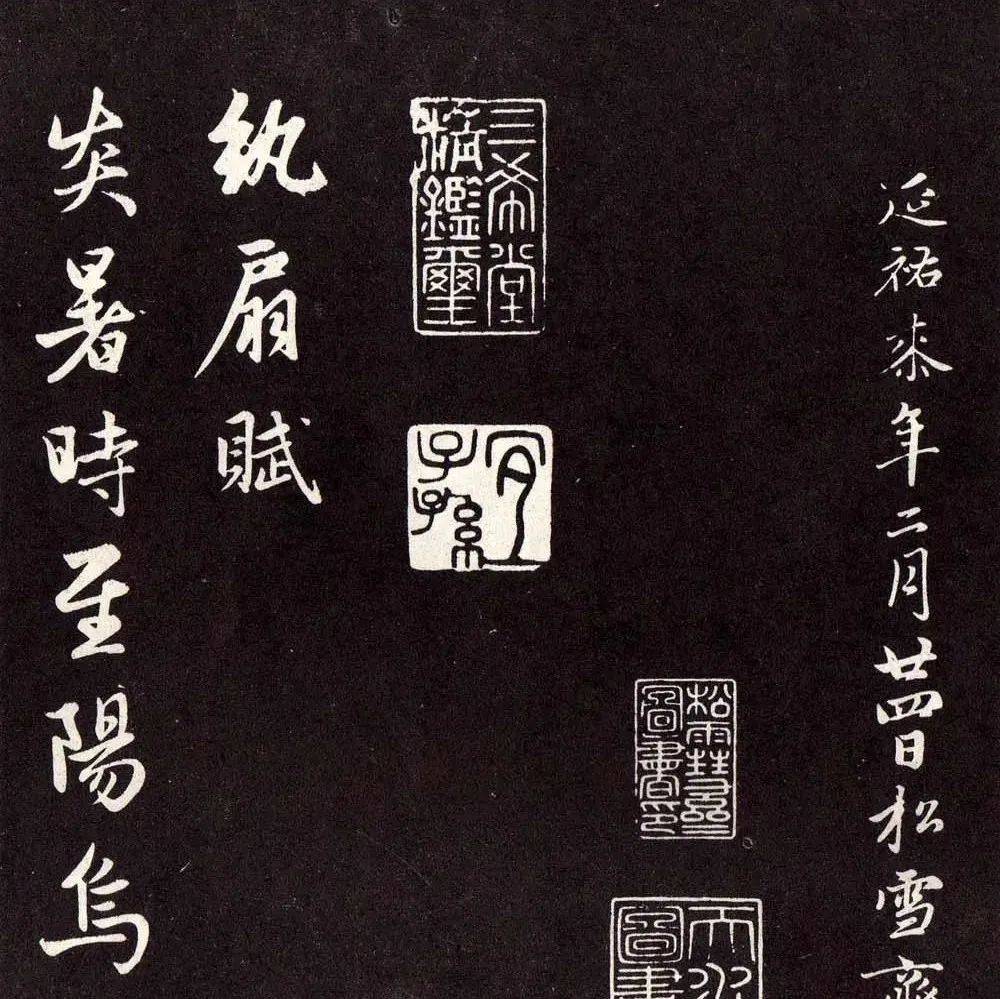 延祐桼年二月廿四日松雪齋
松雪齋圖書印
天水
圖書
三希堂
精鑑璽
宜子孫
紈扇賦
炎暑時至陽烏